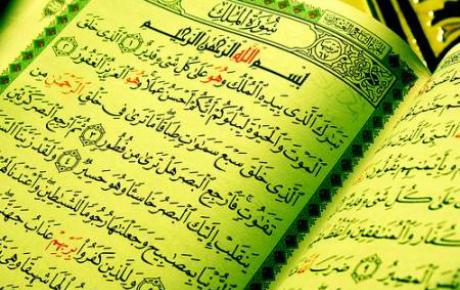 سُورَةُ الْمُلْكِ
بِسْمِ اللَّهِ الرَّحْمَٰنِ الرَّحِيمِ
تَبَارَكَ الَّذِي بِيَدِهِ الْمُلْكُ وَهُوَ عَلَىٰ كُلِّ شَيْءٍ قَدِيرٌ ١ الَّذِي خَلَقَ
الْمَوْتَ وَالْحَيَوٰةَ لِيَبْلُوَكُمْ أَيُّكُمْ أَحْسَنُ عَمَلًا وَهُوَ الْعَزِيزُ الْغَفُورُ ٢
الَّذِي خَلَقَ سَبْعَ سَمَٰوَٰتٍ طِبَاقًا مَا تَرَىٰ فِي خَلْقِ الرَّحْمَٰنِ مِن
تَفَٰوُتٍ فَارْجِعِ الْبَصَرَ هَلْ تَرَىٰ مِن فُطُورٍ ٣ ثُمَّ ارْجِعِ الْبَصَرَ كَرَّتَيْنِ
يَنقَلِبْ إِلَيْكَ الْبَصَرُ خَاسِئًا وَهُوَ حَسِيرٌ ٤ وَلَقَدْ زَيَّنَّا
الدُّنْيَا بِمَصَٰبِيحَ وَجَعَلْنَٰهَا رُجُومًا لِّلشَّيَٰطِينِ وَأَعْتَدْنَا لَهُمْ
وَلِلَّذِينَ كَفَرُوا بِرَبِّهِمْ عَذَابُ جَهَنَّمَ
النَّبِيَّ وَالَّذِينَ
عَلَىٰ كُلِّ شَيْءٍ قَدِيرٌ
الْكُفَّارَ وَالْمُنَٰفِقِينَ وَاغْلُظْ
الْمَصِيرُ ٩ ضَرَبَ